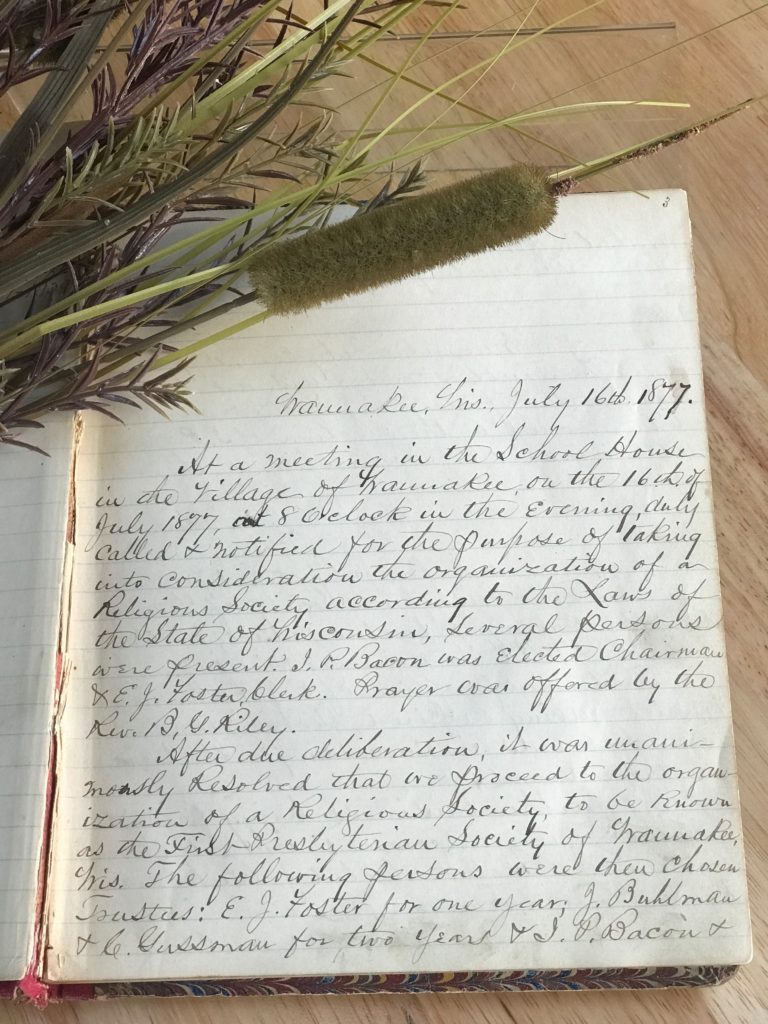 3
Waunakee, Wis., July 16th 1877.
At a meeting in the School House
in the Village of Waunakee, on the 16th of
July 1877, at 8 Oclock in the Evening, duly
called & notified for the purpose of taking
into consideration the organization of a
Religious Society according to the Laws of
the State of Wisconsin, several persons
were present. I. P. Bacon was Elected Chairman
& E. J. Foster, Clerk. Prayer was offered by the
Rev. B. G. Riley.
After due deliberation, it was unani-
mously Resolved that we proceed to the organ-
ization of a Religious Society, to be known
as the First Presbyterian Society of Waunakee,
Wis. The following persons were then chosen
Trustees: E. J. Foster for one year; J. Buhlman
& C. Gussman for two years & I. P. Bacon &